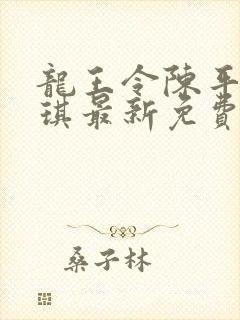 龍王令陳平
琪最新免費
桑子林